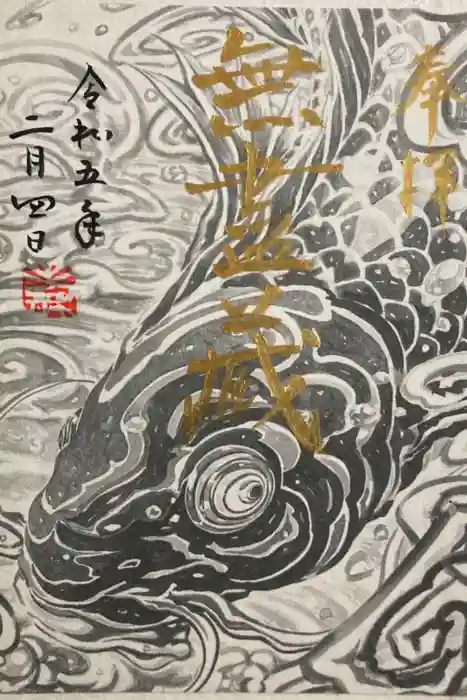 奉拝
無尽蔵
令和五年
二月四日